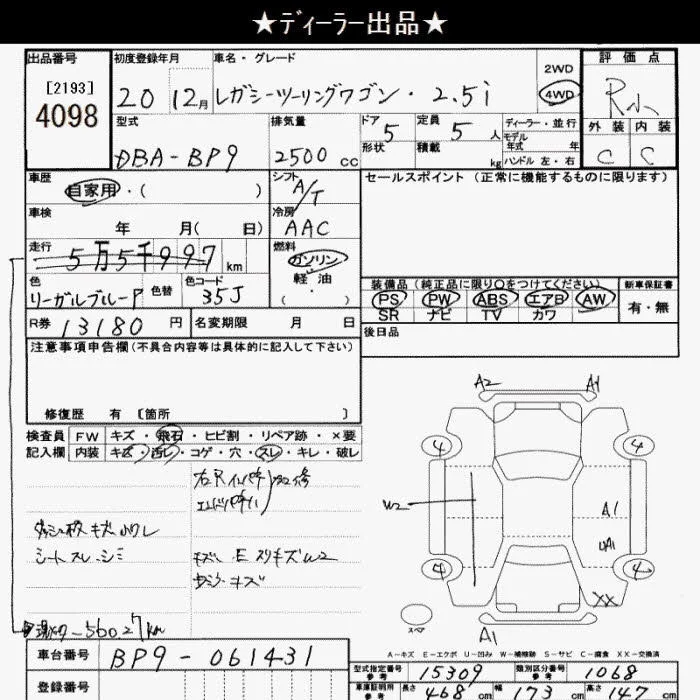 ★ディーラー出品★
出品番号
[2193]
4098
初度登録年月
20 12月
車名・グレード
レガシーツーリングワゴン・2.5i
2WD
4WD
評価点
R
外装 内装
C C
型式
DBA-BP9
排気量
2500 cc
ドア 5
形状
定員 5 人
積載 kg
ディーラー・並行
モデル年式 年
ハンドル 左・右
車歴
自家用・( )
シフト
A/T
セールスポイント (正常に機能するものに限ります)
車検
年 月( 日)
冷房
AAC
走行
5万5千997 km
燃料
ガソリン
軽油
( ・ )
色
リーガルブルーP
色替
色コード
35J
装備品 (純正品に限り○をつけてください)
PS PW ABS エアB AW
SR ナビ TV カワ
新車保証書
有・無
R券 13180 円
名変期限 月 日
後日品
注意事項申告欄(不具合内容等は具体的に記入して下さい)
修復歴 有 [箇所 ]
検査員
記入欄
FW キズ・飛石・ヒビ割・リペア跡・×要
内装 キズ・汚レ・コゲ・穴・スレ・キレ・破レ
シートスレ・シミ
56027km
A2 A1
4 4
W2
A1
UA1
4 4
XX
スペア
A1
A-キズ E-エクボ U-凹み W-補修跡 S-サビ C-腐食 XX-交換済
車台番号
BP9-061431
登録番号
型式指定番号
参考
15309
類別区分番号
参考
1068
車庫証明用
参考
長さ 468 cm
幅 173 cm
高さ 147 cm